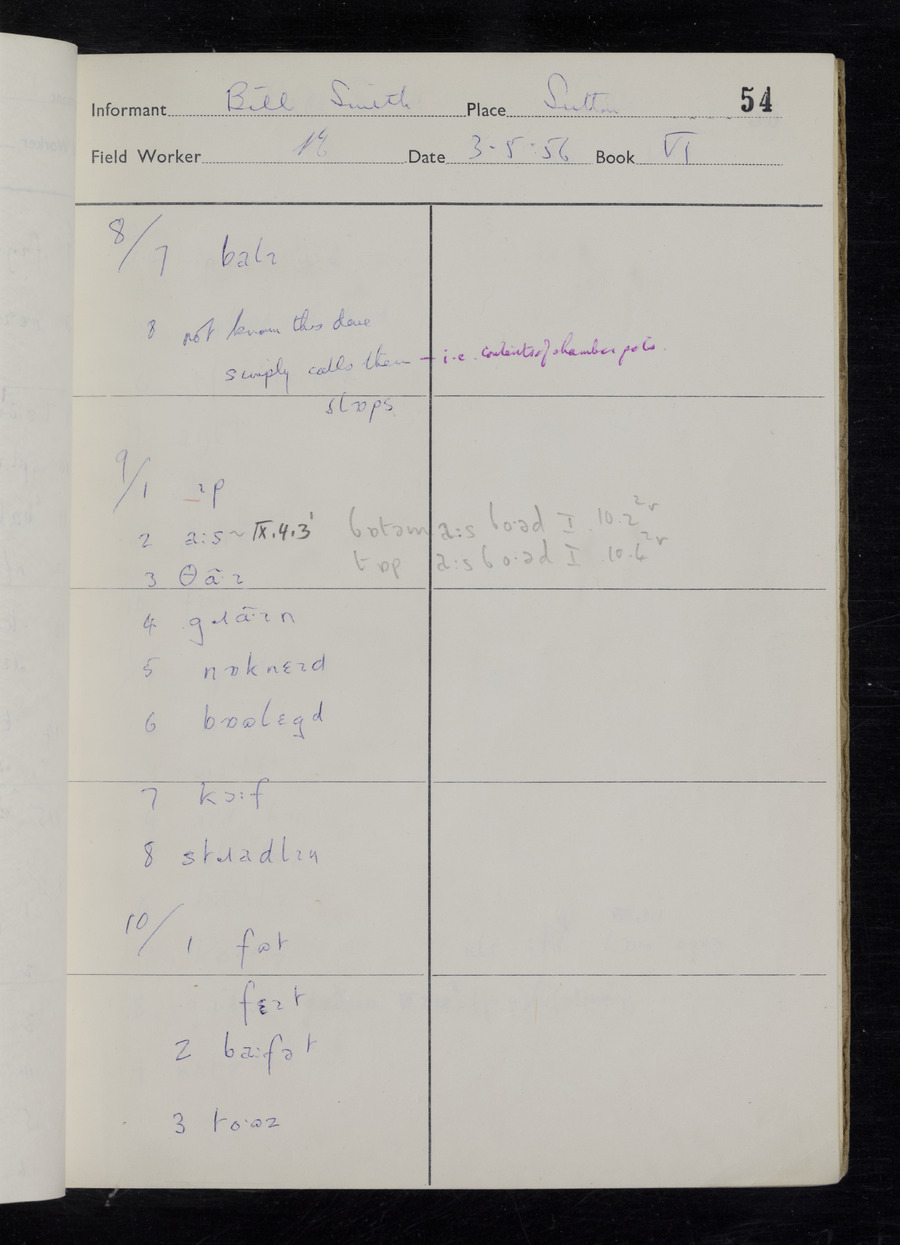 Informant Bill Smith Place Sutton 54
Field Worker Date 3-5-56 Book VI
8/7 balɪ
8 not know this done
simply calls them – i.e. contents of chamber pots.
slɒps
9/1 ɪp
2 a:s ~ IX.4.3' botəm a:s bo:əd I 10.2
tɒp a:s bo:əd I 10.6
3 θāɪ
4 gɹāɪn
5 nɒknɛɪd
6 bɒωlɛgd
7 kɔ:f
8 stɹadlɪn
10/1 fωt
fɛɪt
2 ba:fət
3 to·ωz